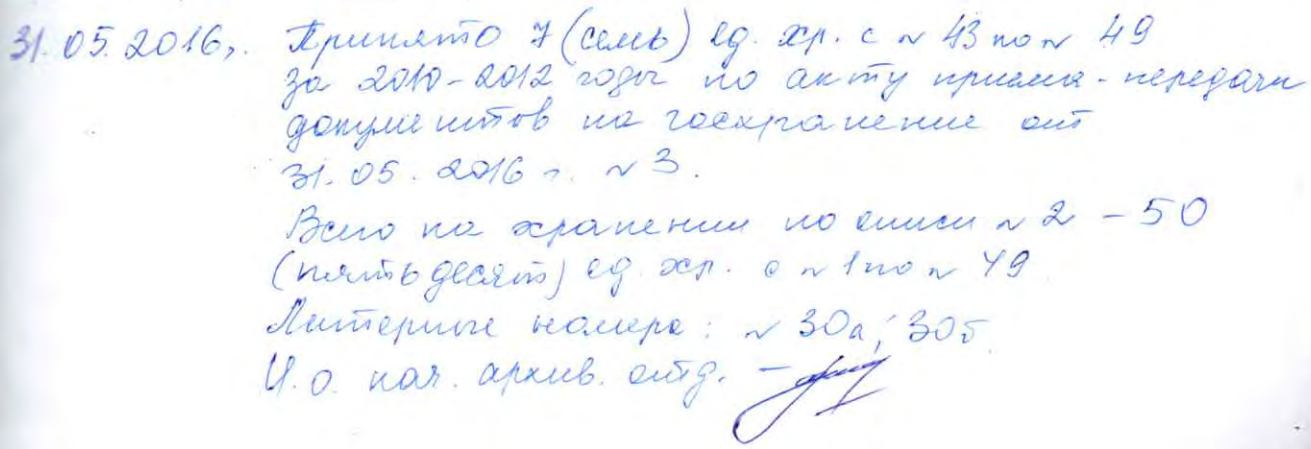 31.05.2016г. Принято 7 (семь) ед. хр. с № 43 по № 49
за 2010-2012 годы по акту приема-передачи
документов на госхранение от
31.05.2016 г. № 3.
Всего на хранении по описи № 2 - 50
(пятьдесят) ед. хр. с № 1 по № 49
Литерные номера: № 30а; 30б.
И.о. нач. архив. отд. -